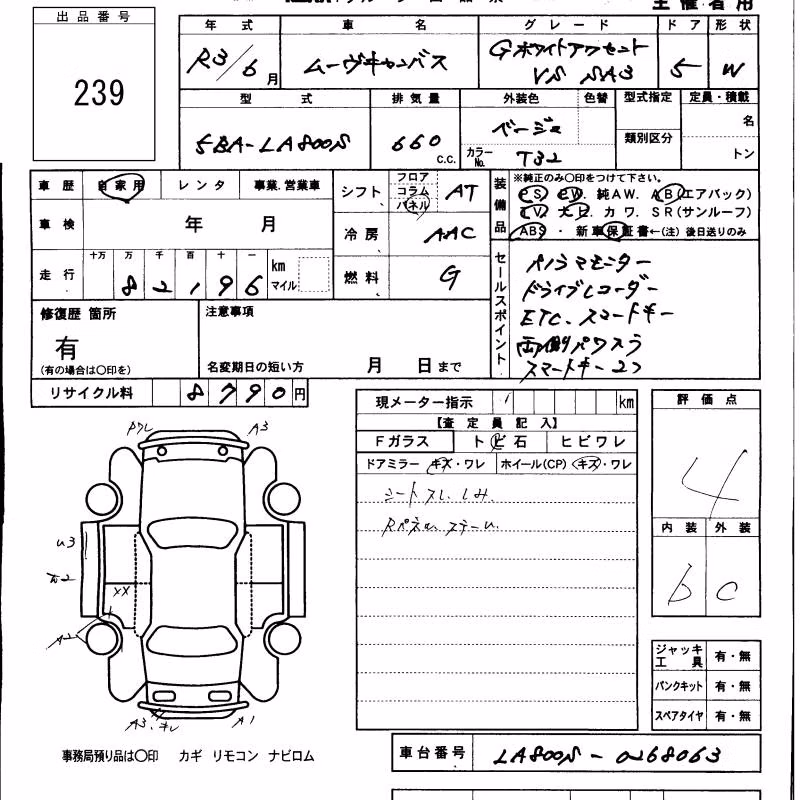 主催者用
出品番号
239
年式 車名 グレード ドア 形状
R3/6月 ムーヴキャンバス Gホワイトアクセント VS SA3 5 W
型式 排気量 外装色 色替 型式指定 定員・積載
5BA-LA800S 660 C.C. ベージュ 類別区分 名
カラーNo. T32 トン
車歴 自家用 レンタ 事業.営業車 シフト フロア コラム パネル AT
装備品 ※純正のみ○印をつけて下さい。
PS PW. 純AW. AB(エアバッグ)
TV. ナビ. カワ. SR(サンルーフ)
ABS ・ 新車保証書←(注) 後日送りのみ
車検 年 月 冷房 AAC
走行 十万 万 千 百 十 一 km マイル 燃料 G
8 2 1 9 6
セールスポイント
パノラマモニター
ドライブレコーダー
ETC. スマートキー
両側パワスラ
スマートキー2つ
修復歴 箇所 注意事項
有
(有の場合は○印を) 名変期日の短い方 月 日まで
リサイクル料 8790円
現メーター指示 km
【査定員記入】
Fガラス トビ石 ヒビワレ
ドアミラー キズ・ワレ ホイール(CP) キズ・ワレ
シートスレ. しみ
評価点
4
内装 外装
b C
A3
U3
XX
A2
A3. キレ A1
ジャッキ工具 有・無
パンクキット 有・無
スペアタイヤ 有・無
事務局預り品は○印 カギ リモコン ナビロム
車台番号 LA800S-0268063